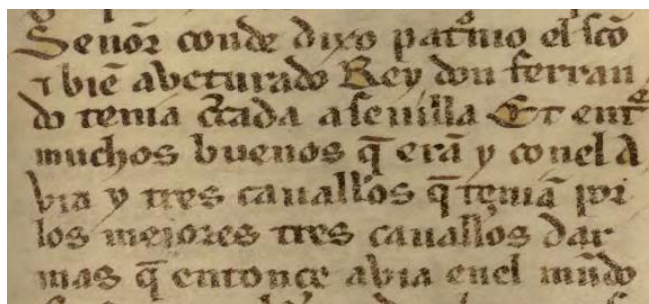 Señor conde dixo patͦnio el sc̃o
⁊ biē avēturado Rey don ferran
do tenia cͨada a seuilla Et entͤ
muchos buenos q̄ erā y conel a
via y tres cauallos q̄ teniā por
los mejores tres cauallos dar
mas q̄ entonce avia enel mūdo